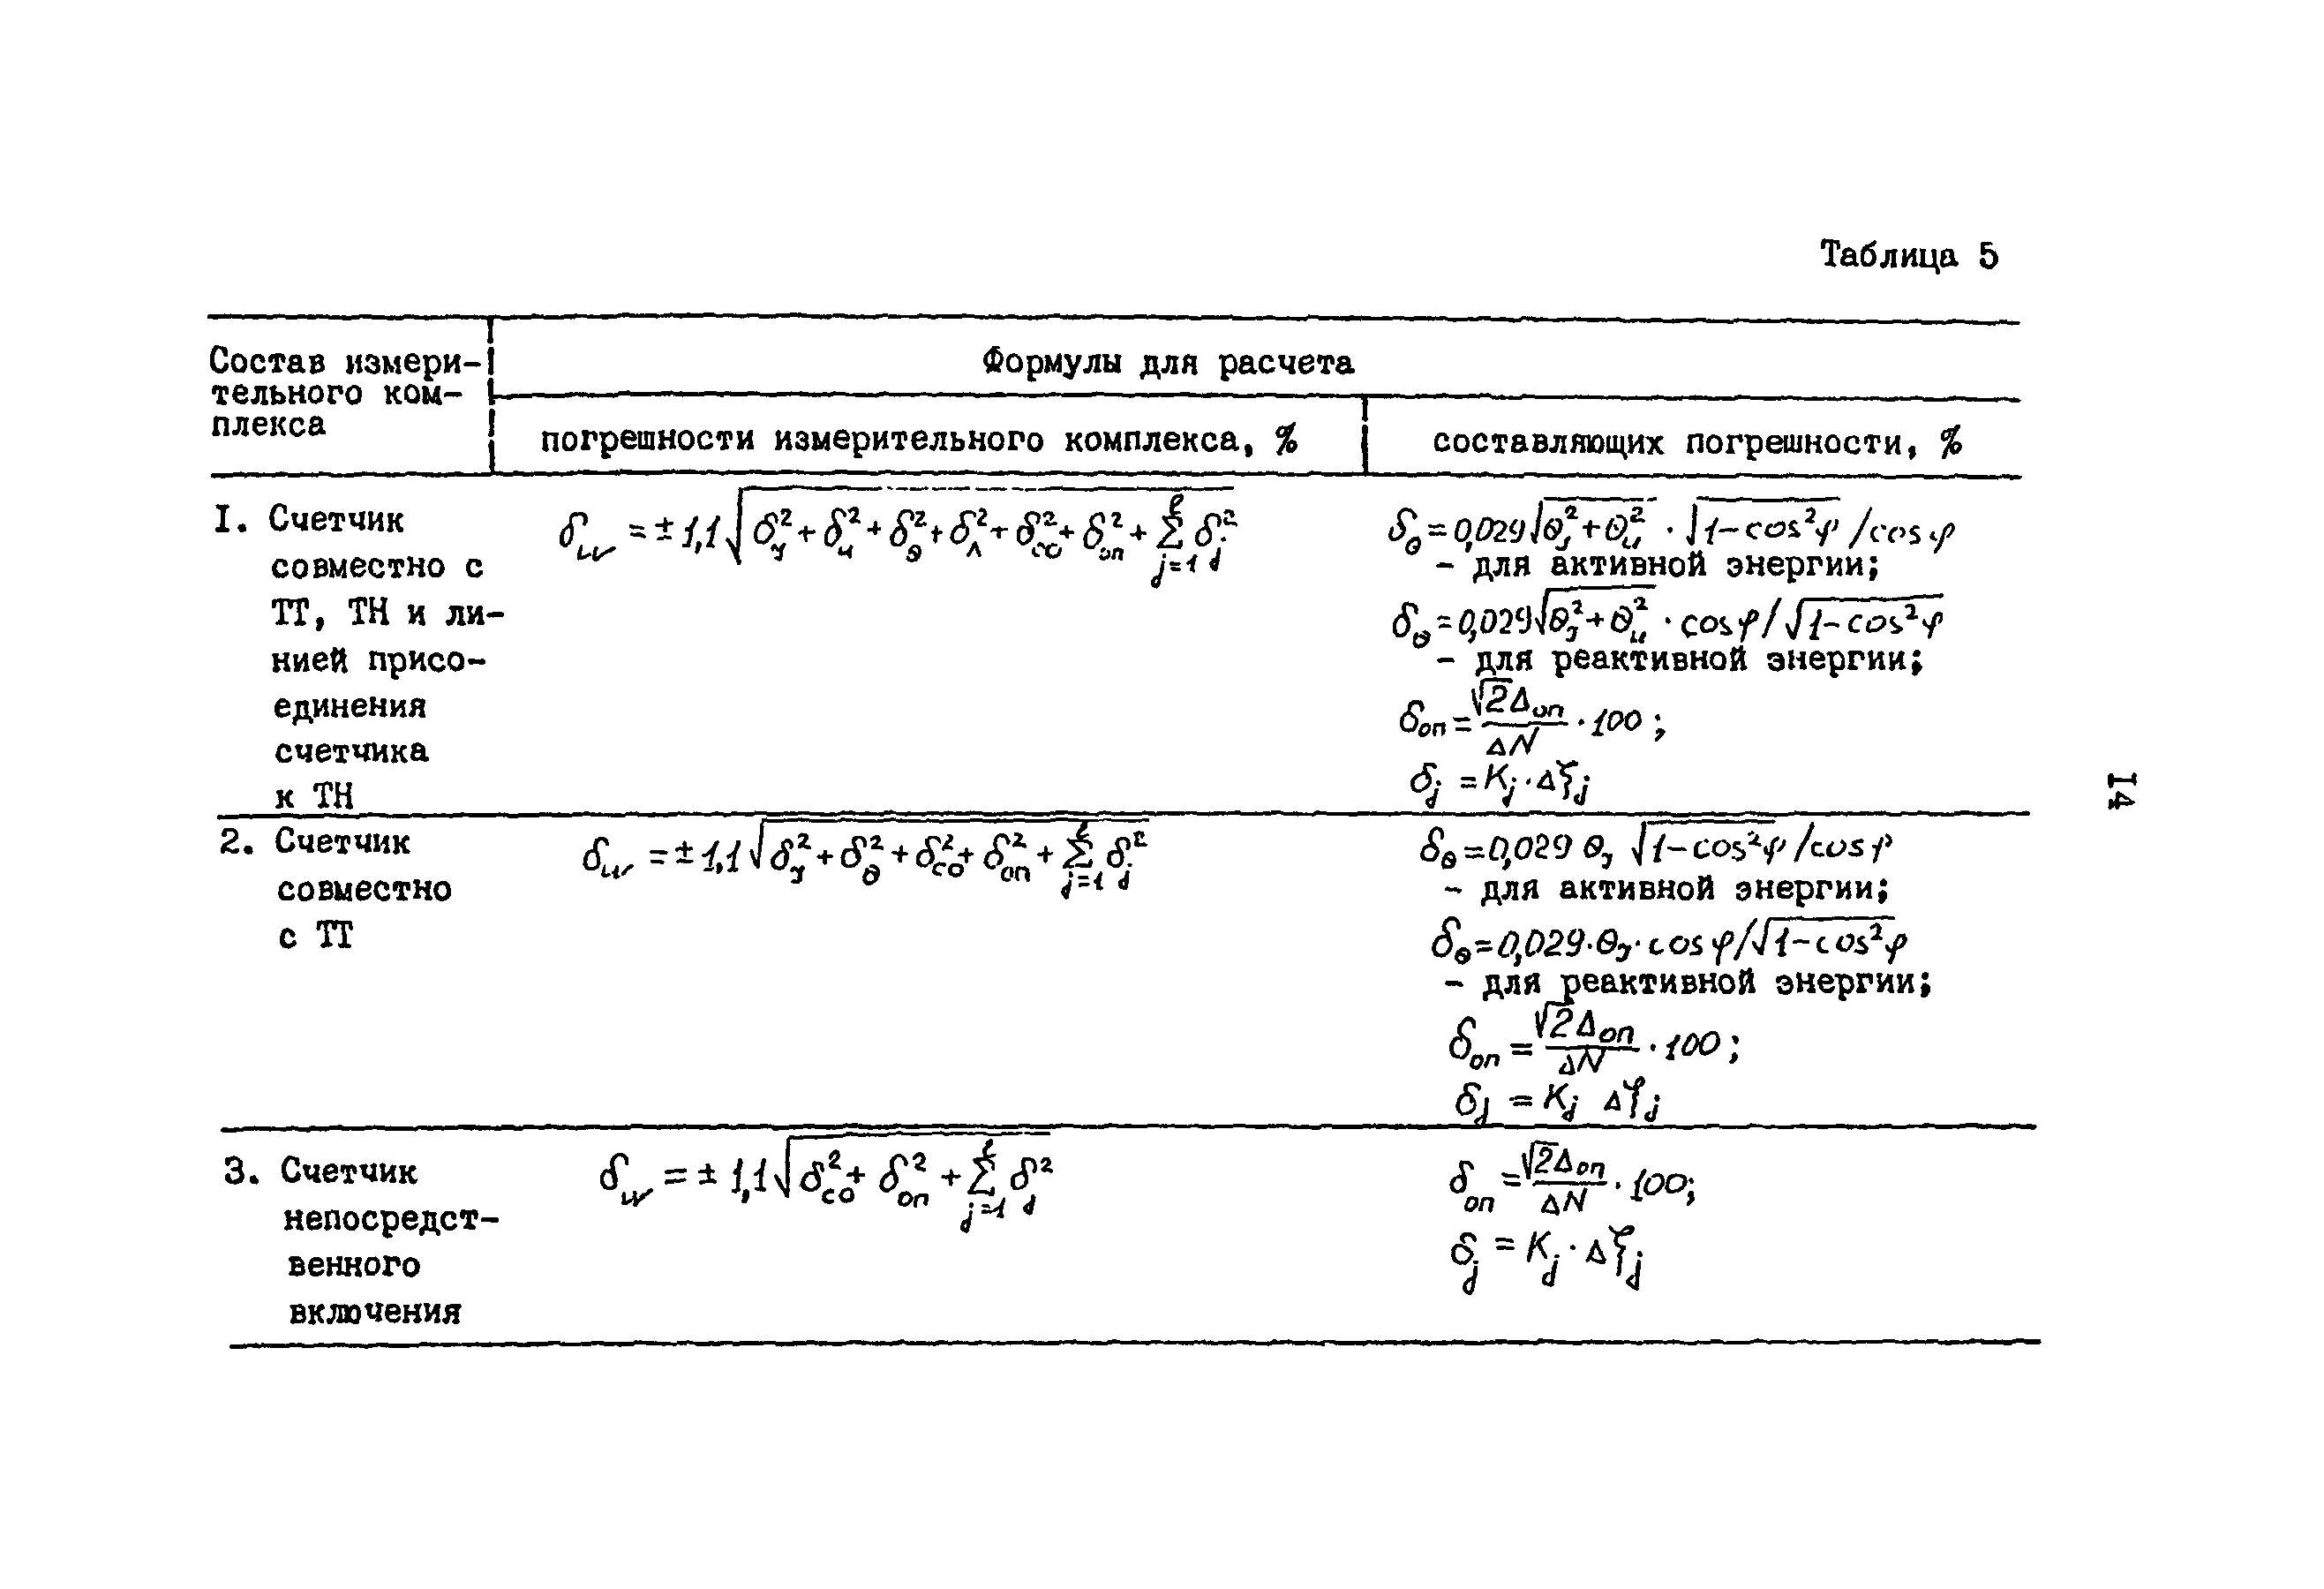 Таблица 5
Состав измери-
тельного ком-
плекса
Формулы для расчета
погрешности измерительного комплекса, %
составляющих погрешности, %
I. Счетчик
совместно с
ТТ, ТН и ли-
нией присо-
единения
счетчика
к ТН
δ_w = ± 1,1 √(δ_J² + δ_u² + δ_θ² + δ_Л² + δ_со² + δ_оп² + Σ_{j=1}^{ℓ} δ_j²)
δ_θ = 0,029 √(θ_J² + θ_u²) · √(1 - cos²φ) / cos φ
- для активной энергии;
δ_θ = 0,029 √(θ_J² + θ_u²) · cos φ / √(1 - cos²φ)
- для реактивной энергии;
δ_оп = √2 Δ_оп / ΔN · 100 ;
δ_j = K_j · Δξ_j
2. Счетчик
совместно
с ТТ
δ_w = ± 1,1 √(δ_J² + δ_θ² + δ_со² + δ_оп² + Σ_{j=1}^{ℓ} δ_j²)
δ_θ = 0,029 θ_J √(1 - cos²φ) / cos φ
- для активной энергии;
δ_θ = 0,029 · θ_J · cos φ / √(1 - cos²φ)
- для реактивной энергии;
δ_оп = √2 Δ_оп / ΔN · 100 ;
δ_j = K_j Δξ_j
3. Счетчик
непосредст-
венного
включения
δ_w = ± 1,1 √(δ_со² + δ_оп² + Σ_{j=1}^{ℓ} δ_j²)
δ_оп = √2 Δ_оп / ΔN · 100;
δ_j = K_j · Δξ_j
I4